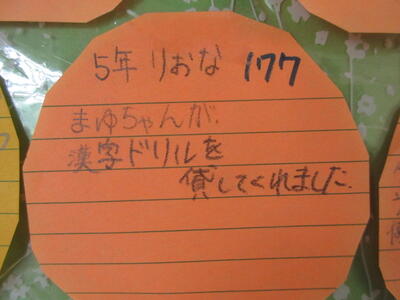 5年 りおな 177
まゆちゃんが、
漢字ドリルを
貸してくれました。